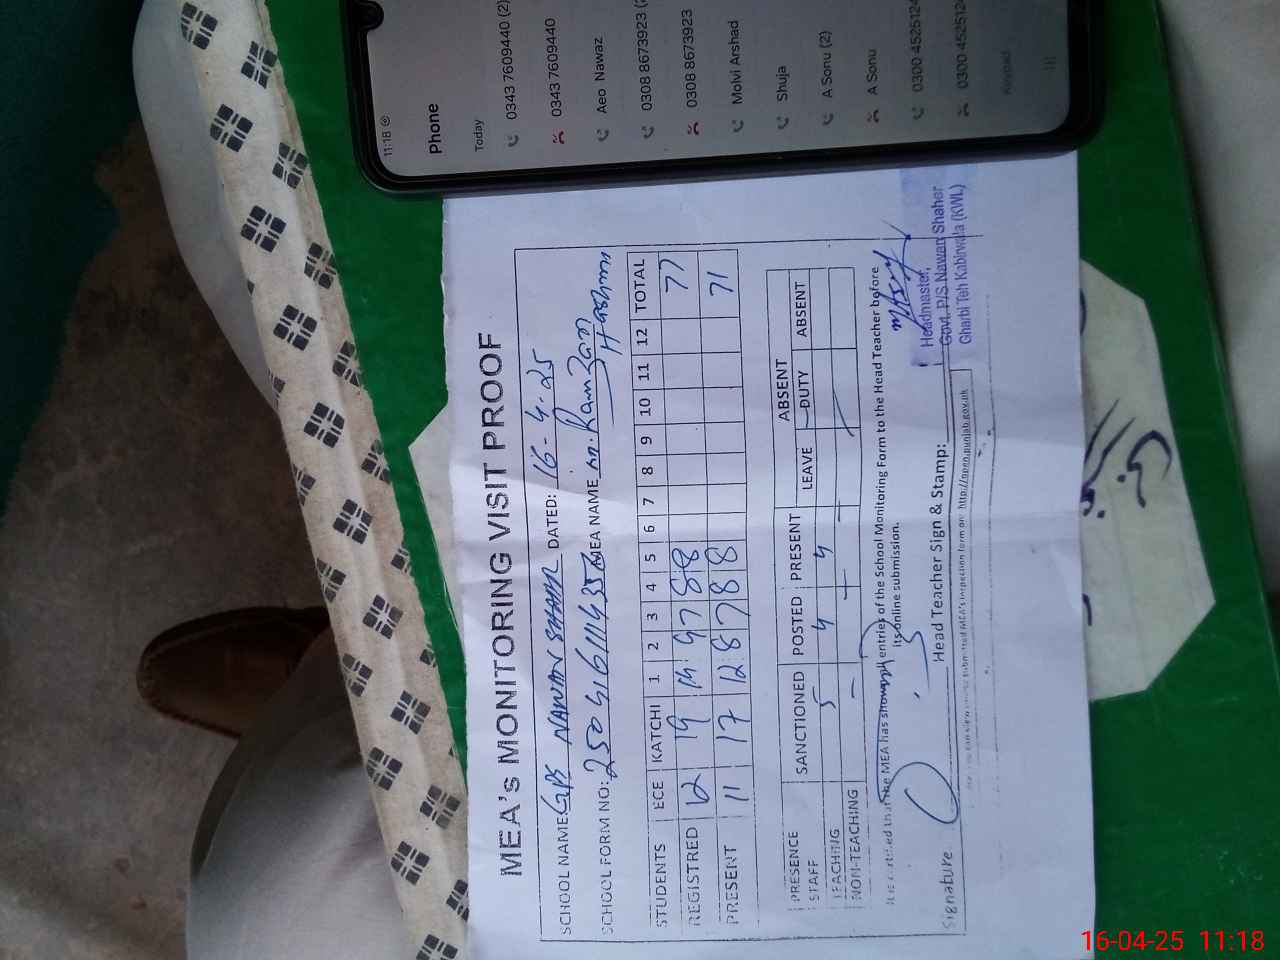 11:18
Phone
Today
0343 7609440 (2)
0343 7609440
Aeo Nawaz
0308 8673923
0308 8673923
Molvi Arshad
Shuja
A Sonu (2)
A Sonu
0300 4525124
0300 4525124
Keypad
MEA's MONITORING VISIT PROOF
SCHOOL NAME: GPS NAWAN SHAHR DATED: 16-4-25
SCHOOL FORM NO: MEA NAME m. Ramzan Hashmi
STUDENTS ECE KATCHI 1 2 3 4 5 6 7 8 9 10 11 12 TOTAL
REGISTRED 12 19 14 9 7 8 8 77
PRESENT 11 17 12 8 7 8 8 71
PRESENCE SANCTIONED POSTED PRESENT ABSENT
STAFF LEAVE DUTY ABSENT
TEACHING 5 4 4
NON-TEACHING - - -
It is certified that the MEA has shown all entries of the School Monitoring Form to the Head Teacher before
its online submission.
Signature Head Teacher Sign & Stamp:
Headmaster,
Govt. P/S Nawan Shaher
Gharbi Teh Kabirwala (KWL)
You can view submitted MEA's inspection form on: http://open.punjab.gov.pk
16-04-25 11:18